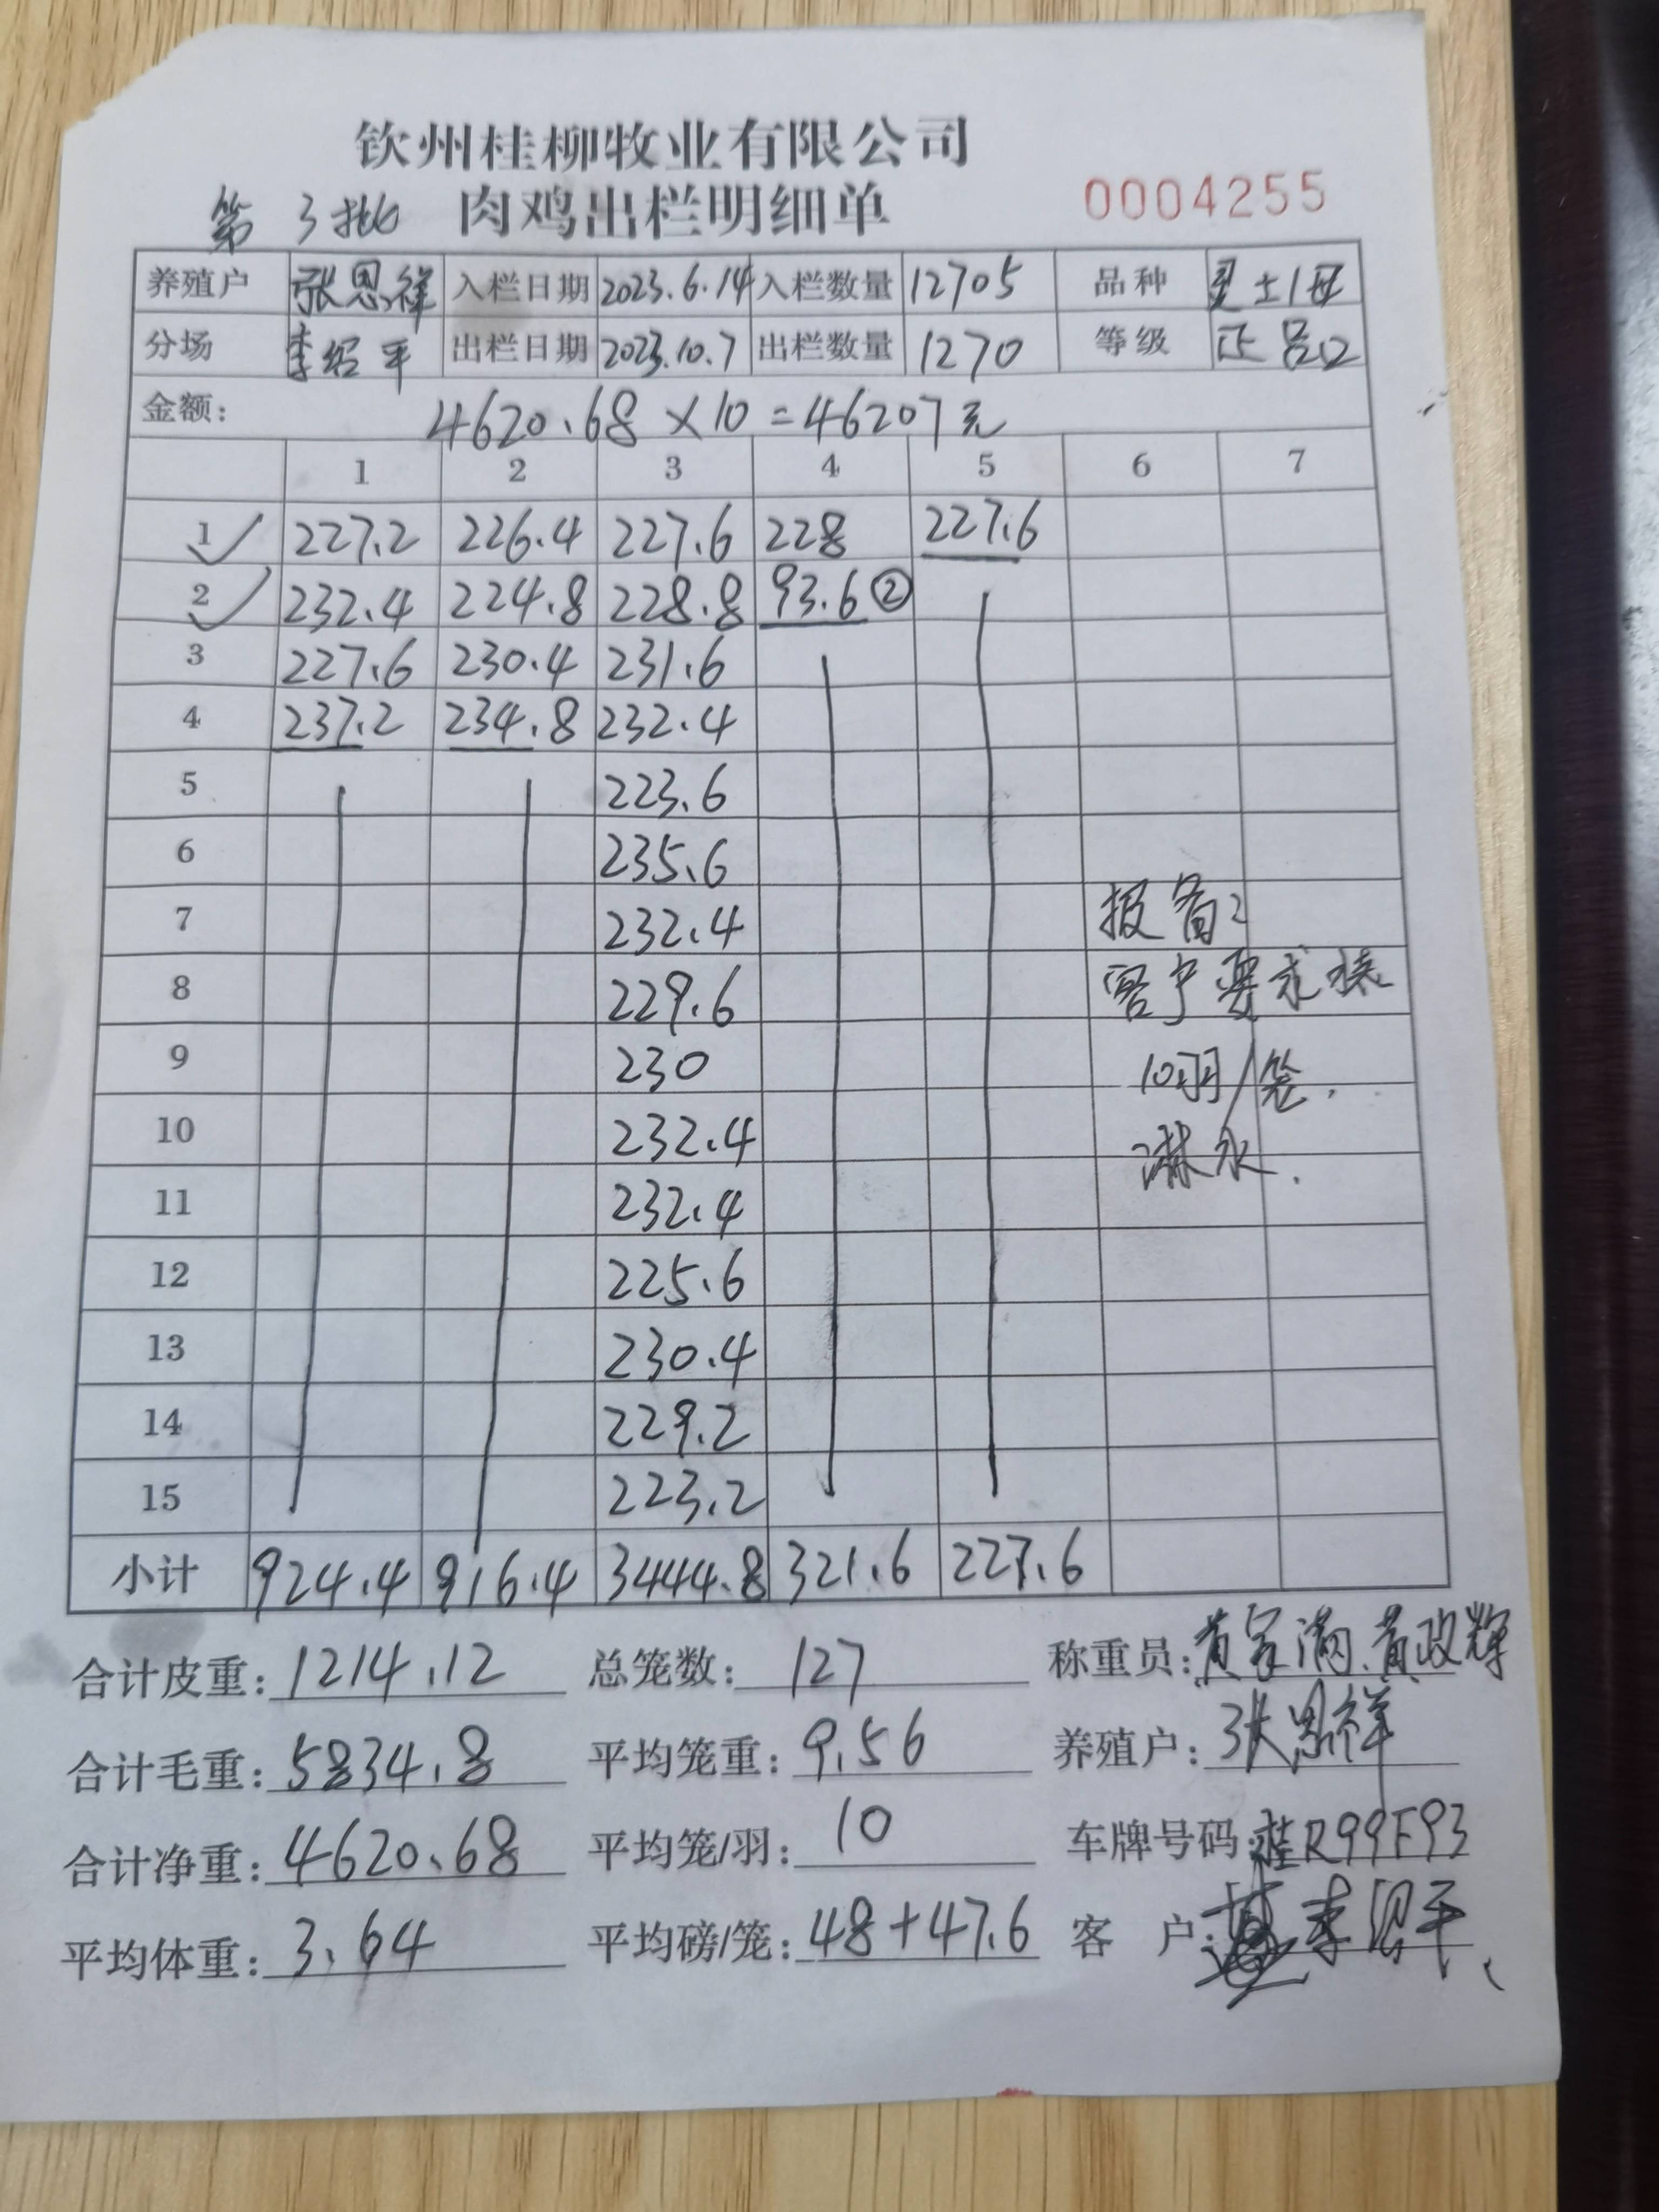 钦州桂柳牧业有限公司
第 3批 肉鸡出栏明细单 0004255
养殖户 张恩祥 入栏日期 2023.6.14 入栏数量 12705 品种 土1母
分场 李绍平 出栏日期 2023.10.7 出栏数量 1270 等级 正品
金额: 4620.68 × 10 = 46207元
1 2 3 4 5 6 7
1 ✓ 227.2 226.4 227.6 228 227.6
2 ✓ 232.4 224.8 228.8 93.6 ②
3 227.6 230.4 231.6
4 237.2 234.8 232.4
5 223.6
6 235.6
7 232.4 报备:
8 229.6 客户要求装
9 230 10羽/笼.
10 232.4 淋水.
11 232.4
12 225.6
13 230.4
14 229.2
15 223.2
小计 924.4 916.4 3444.8 321.6 227.6
合计皮重: 1214.12 总笼数: 127 称重员: 黄家满、黄政辉
合计毛重: 5834.8 平均笼重: 9.56 养殖户: 张恩祥
合计净重: 4620.68 平均笼/羽: 10 车牌号码: 桂R99F93
平均体重: 3.64 平均磅/笼: 48+47.6 客 户: 李绍平